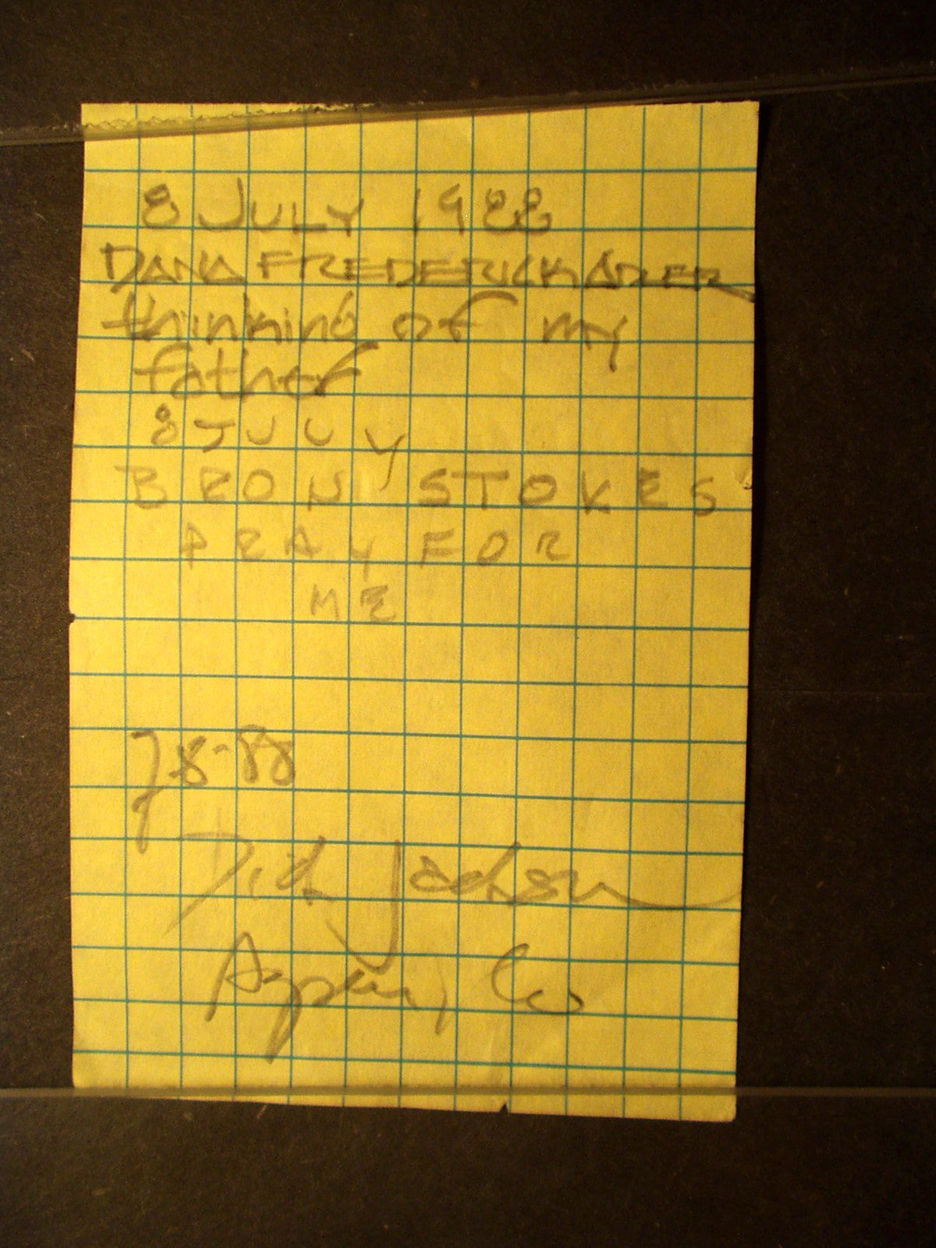 8 JULY 1988
DANA FREDERICK ADLER
thinking of my
father
8 JULY
STOKES
PRAY FOR
ME
7-8-88
Dick Jackson
Aspen, Co